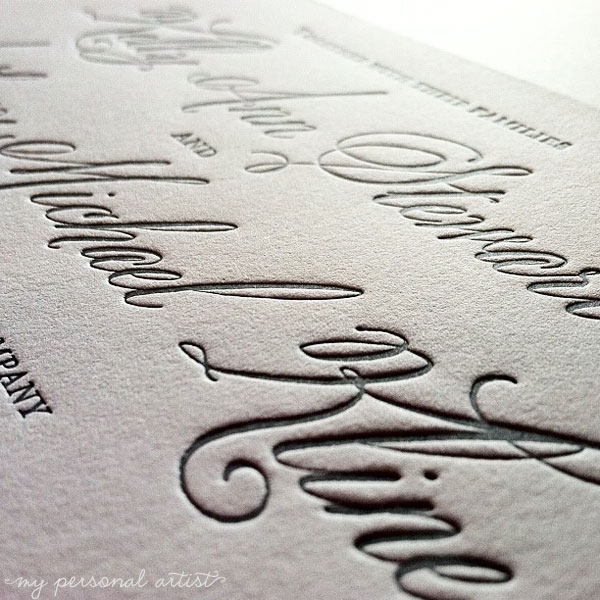 TOGETHER WITH THEIR FAMILIES
Ann Stewar
AND
Michael Kline
MPANY
my personal artist